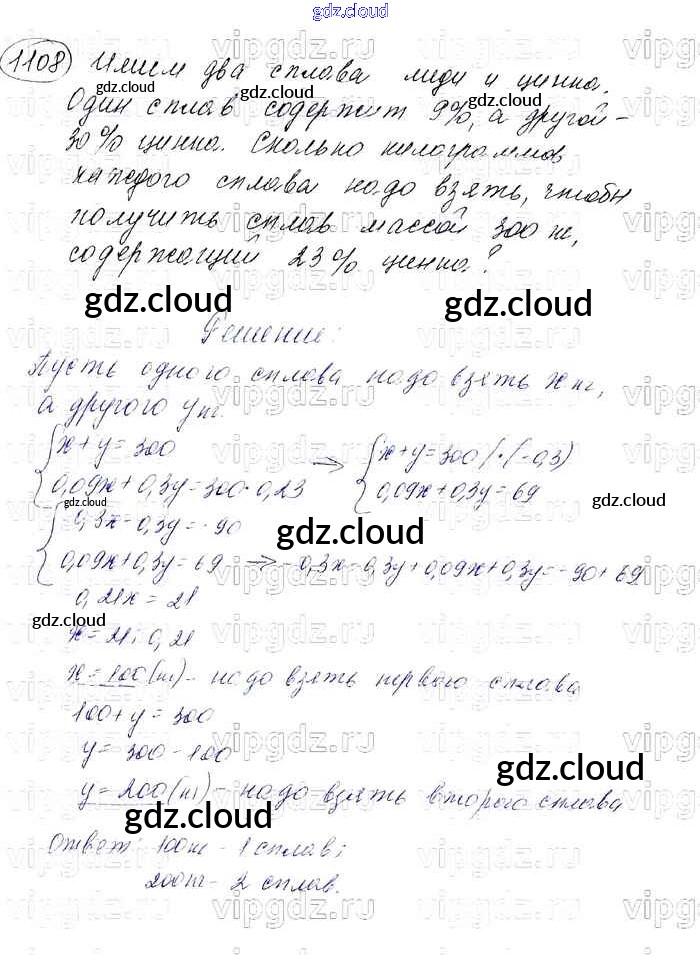 gdz.cloud
1108 Имеем два сплава меди и цинка.
Один сплав содержит 9%, а другой –
30% цинка. Сколько килограммов
каждого сплава надо взять, чтобы
получить сплав массой 300 кг,
содержащий 23% цинка?
gdz.cloud gdz.cloud
Решение:
Пусть одного сплава надо взять x кг,
а другого y кг.
{x+y=300 → {x+y=300 /·(-0,3)
{0,09x+0,3y=300·0,23 {0,09x+0,3y=69
{-0,3x-0,3y=-90
{0,09x+0,3y=69 → -0,3x-0,3y+0,09x+0,3y=-90+69
0,21x=21
x=21:0,21
x=100(кг) - надо взять первого сплава
100+y=300
y=300-100
y=200(кг) - надо взять второго сплава
Ответ: 100кг - 1 сплав;
200кг - 2 сплав.
gdz.cloud
vipgdz.ru